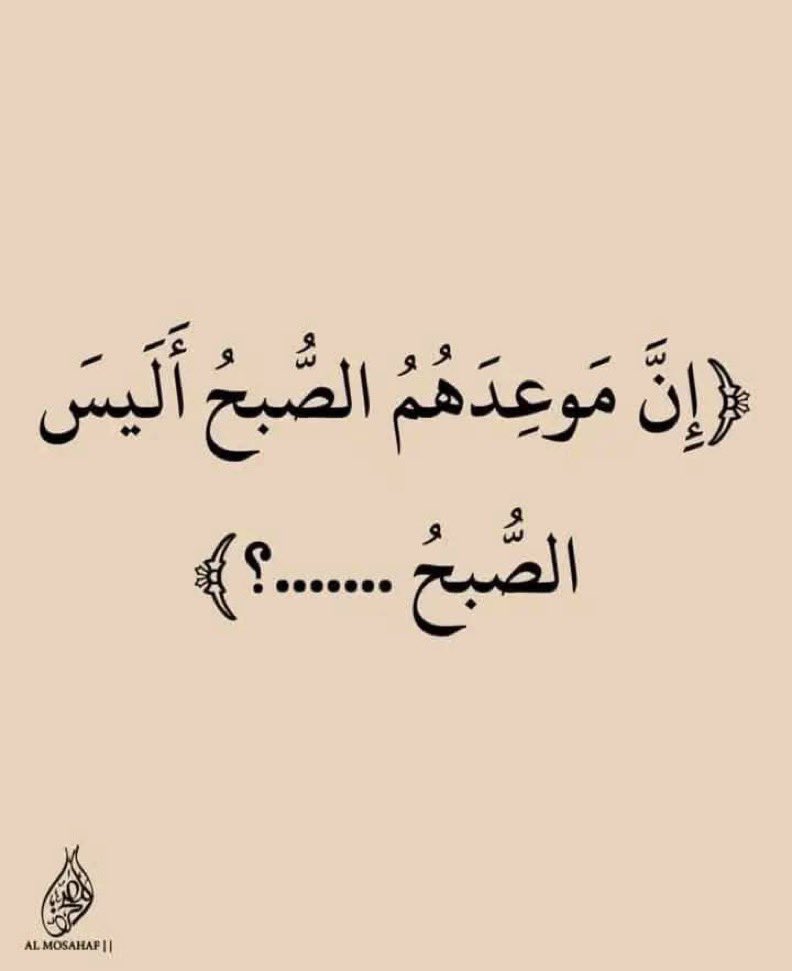 ﴿إِنَّ مَوعِدَهُمُ الصُّبحُ أَلَيسَ
الصُّبحُ .......؟﴾
AL MOSAHAF ||